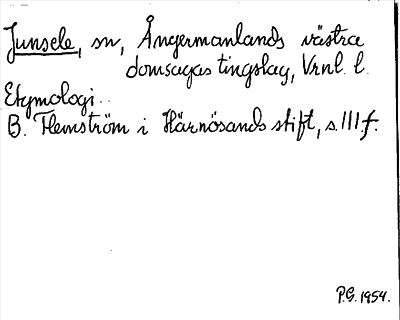 Junsele, sn, Ångermanlands västra
domsagas tingslag, Vrnl. l.
Etymologi.
B. Flemström i Härnösands stift, s. 111 f.
P.G. 1954.